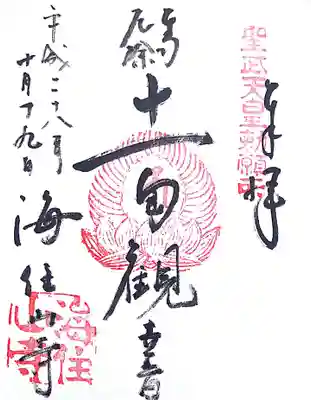 奉拝
聖武天皇勅願所
厄除
十一面観音
平成二十八年
十月十九日
海住山寺
海住山寺